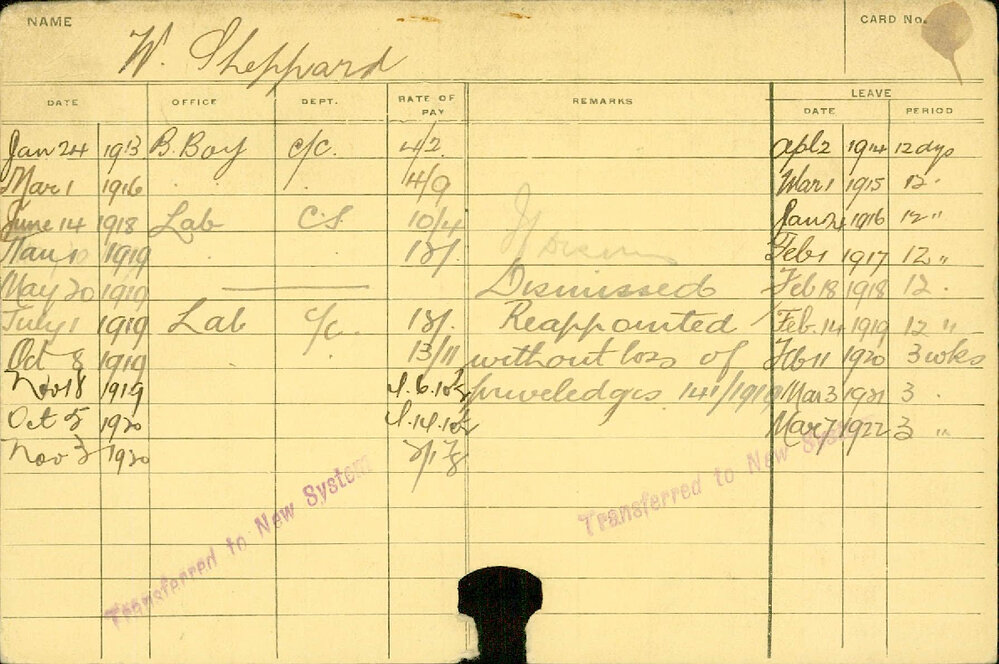 NAME CARD No.
W. Sheppard
LEAVE
DATE OFFICE DEPT. RATE OF PAY REMARKS DATE PERIOD
Jan 24 1913 B. Boy C/C. 4/2 Apl 2 1914 12 dys
Mar 1 1916 . . 4/9 Mar 1 1915 12 "
June 14 1918 Lab C.S 10/4 Jan 24 1916 12 "
1919 . . 12/. Feb 1 1917 12 "
May 20 1919 Dismissed Feb 18 1918 12 "
July 1 1919 Lab C/C. 12/. Reappointed Feb. 14 1919 12 "
Oct 8 1919 . . 13/11 without loss of Feb 11 1920 3 wks
Nov 18 1919 priveledges 141/1919 Mar 3 1921 3 .
Oct 5 1920 Mar 7 1922 3 "
Nov 3 1920
Transferred to New System
Transferred to New System